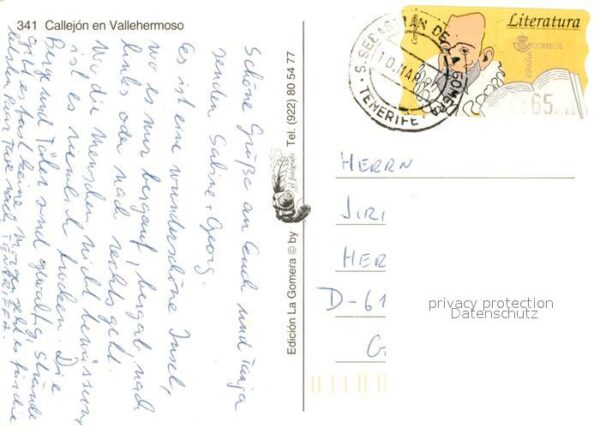 341 Callejón en Vallehermoso
Schöne Grüße an Euch und Tanja
senden Sabine + Georg.
Es ist eine wunderschöne Insel,
wo es nur bergauf, bergab, nach
links oder nach rechts geht.
Wo die Menschen nicht bewässern,
ist es ziemlich trocken. Die
Berge und Täler sind gewaltig, Strände
gibt es fast keine,
nach TENERIFFA.
Edición La Gomera © by
fotografo
Tel. (922) 80 54 77
S. SEBASTIAN DE LA GOMERA
10 MAR
TENERIFE
Literatura
CORREOS
ESPAÑA
65
HERRN
JIRI
HER
D-61
G
privacy protection
Datenschutz